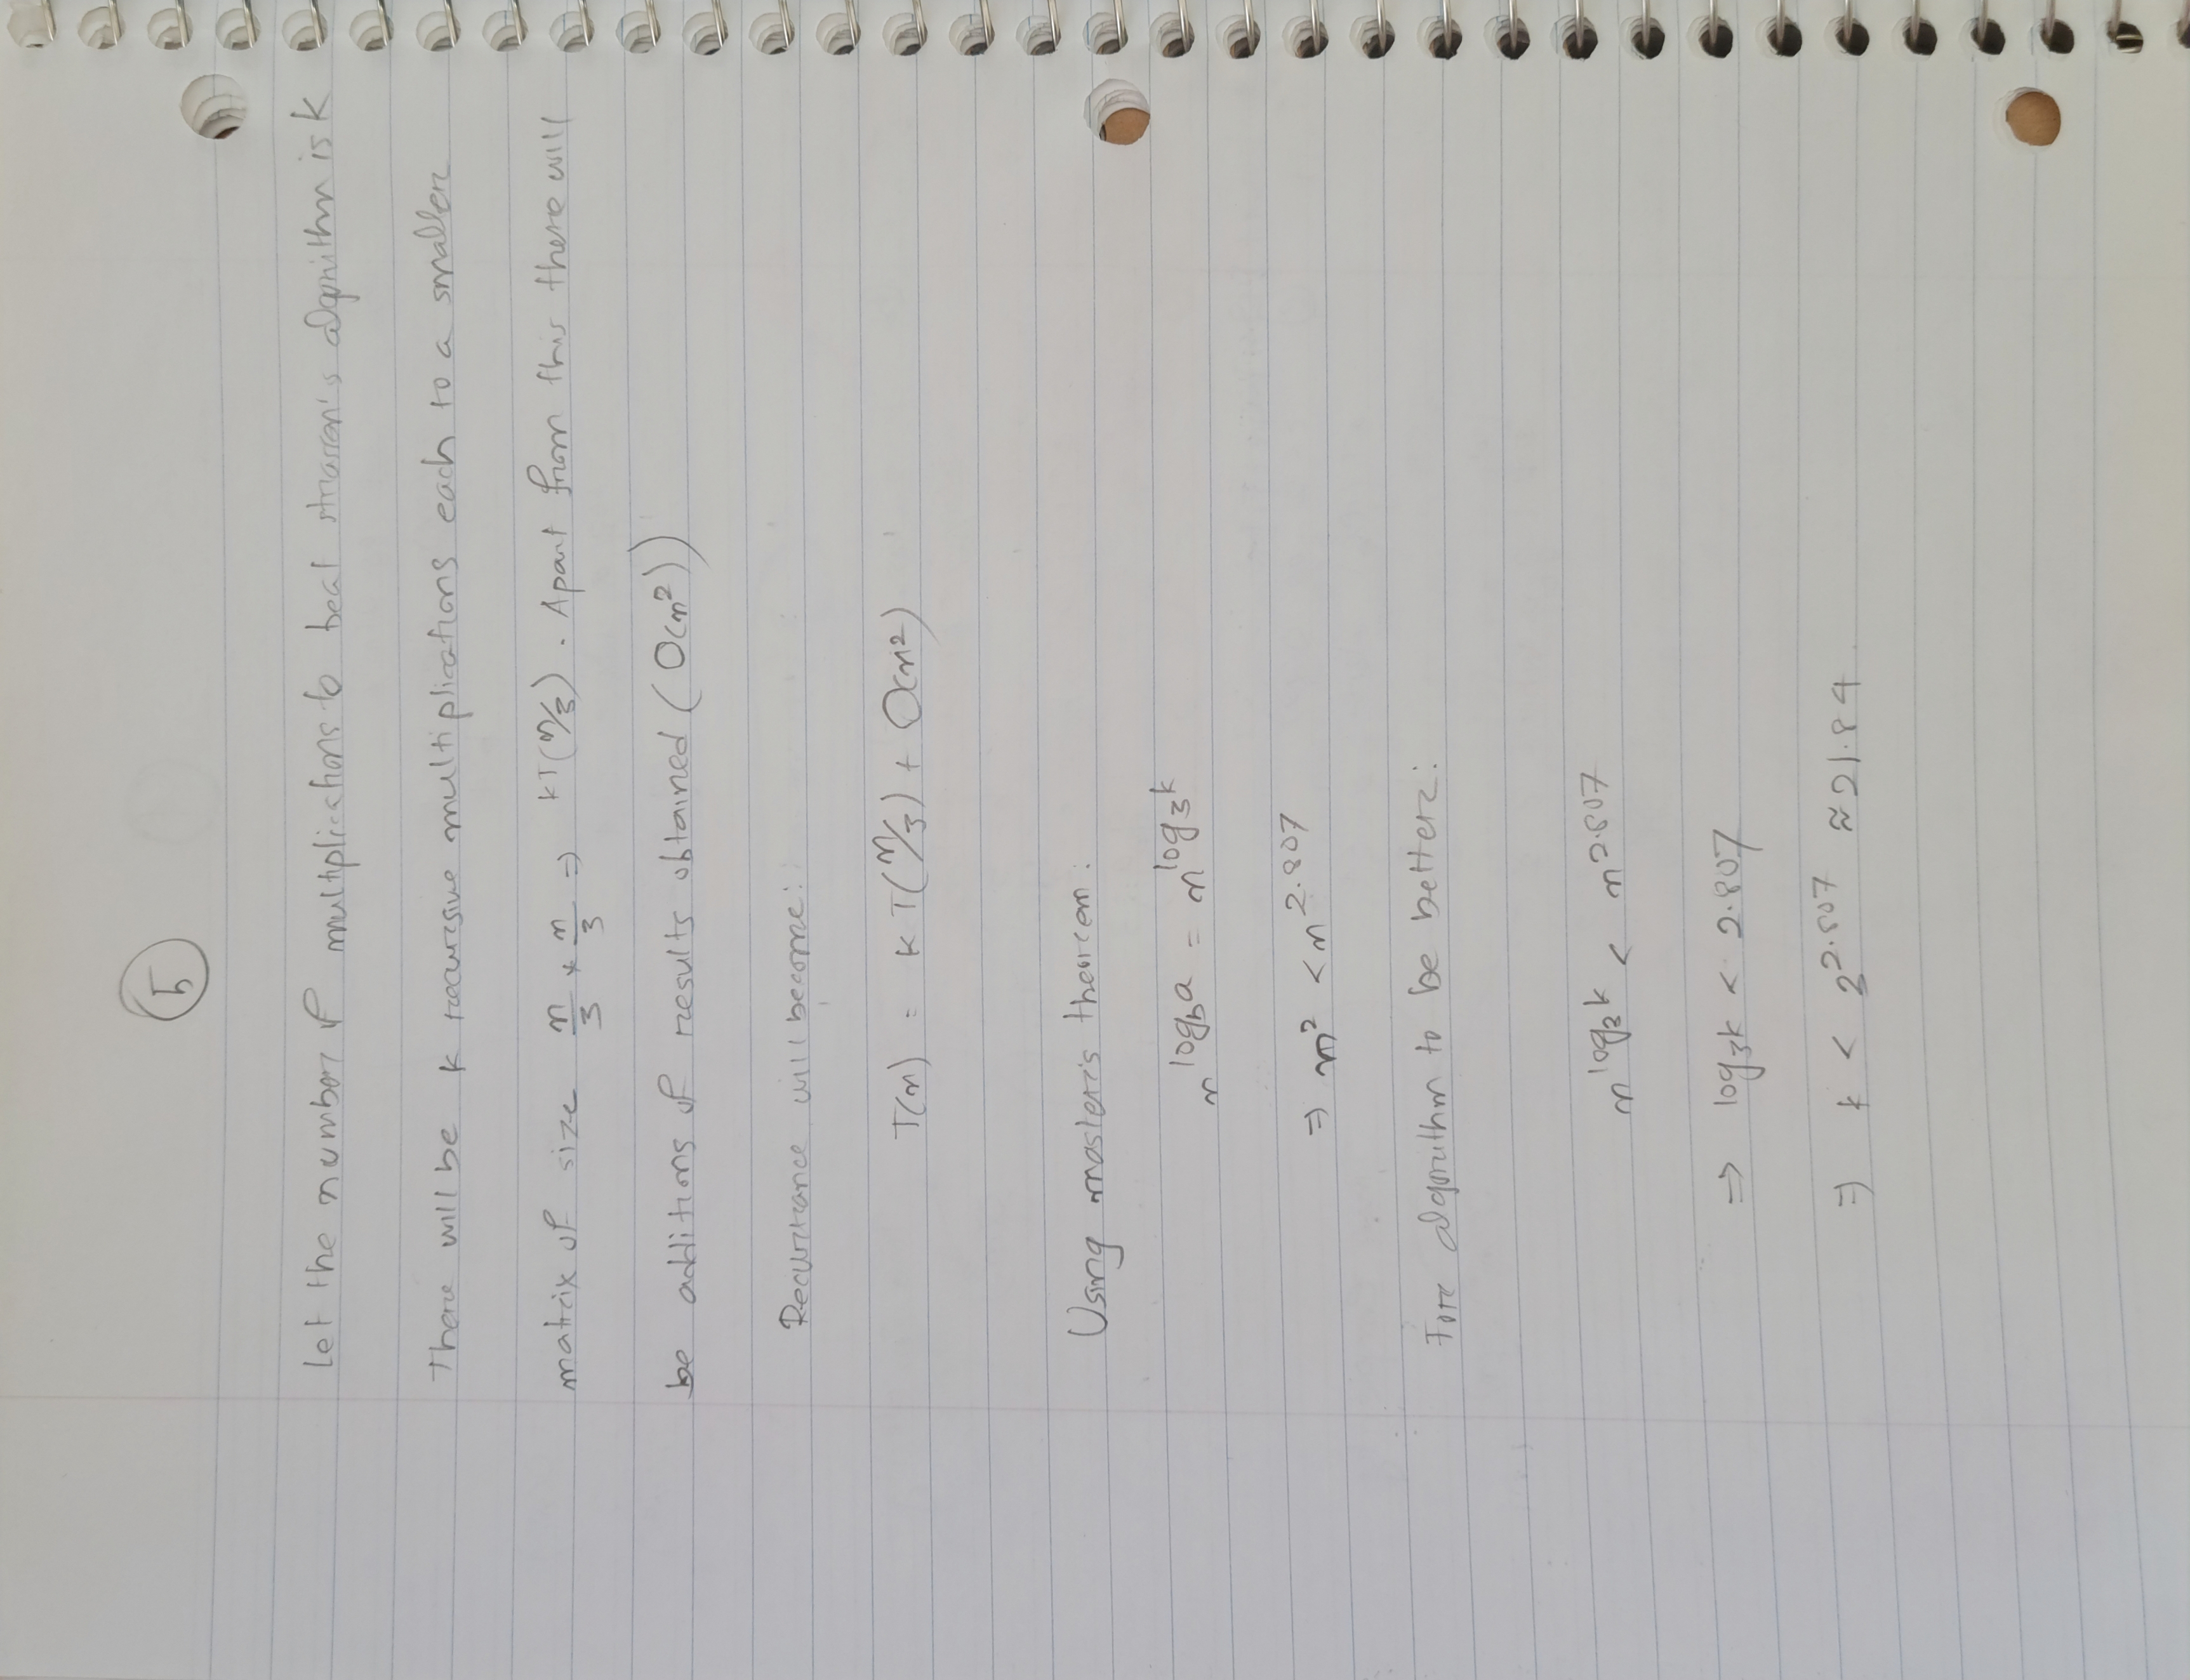 5
Let the number of multiplications to beat strassen's algorithm is k
There will be k recursive multiplications each to a smaller
matrix of size n/3 * n/3 ⇒ kT(n/3). Apart from this there will
be additions of results obtained (O(n²))
Recurrance will become:
T(n) = kT(n/3) + O(n²)
Using master's theorem:
n^log_b a = n^log_3 k
⇒ n² < n^2.807
For algorithm to be better:
n^log_3 k < n^2.807
⇒ log_3 k < 2.807
⇒ k < 3^2.807 ≈ 21.84